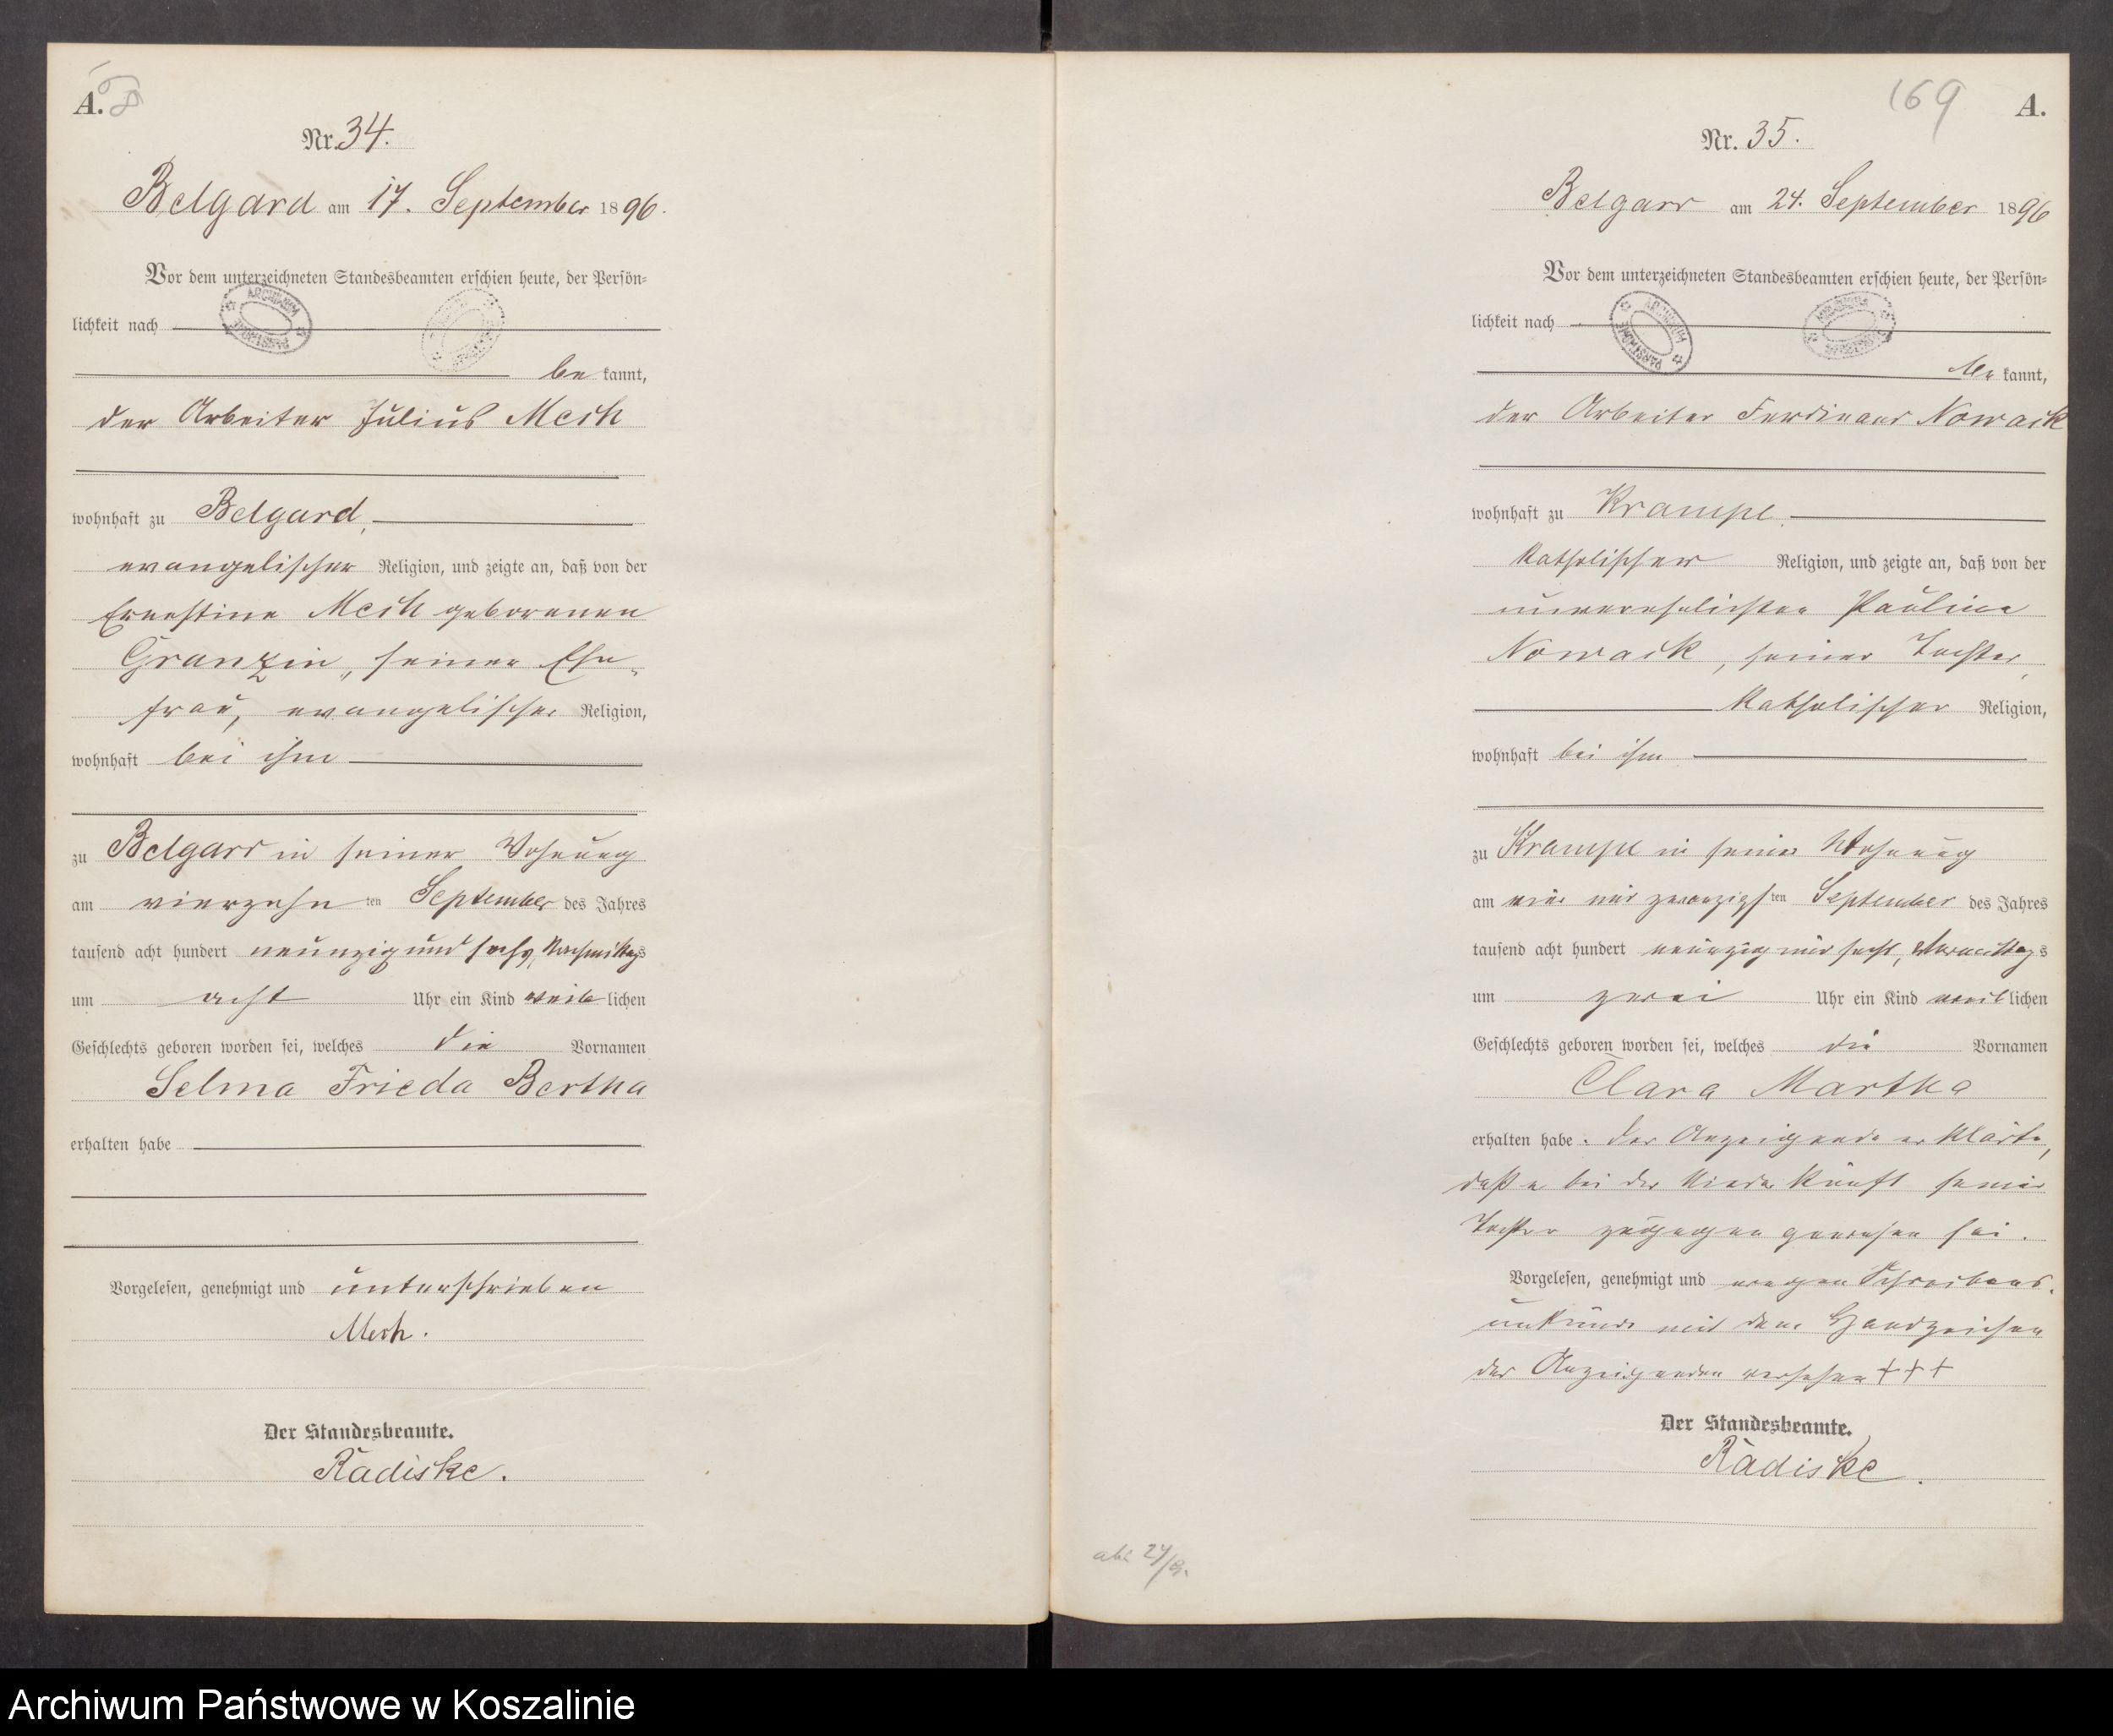 A.
68
Nr. 34.
Belgard am 17. September 1896.
Vor dem unterzeichneten Standesbeamten erschien heute, der Persön-
lichkeit nach
be kannt,
der Arbeiter Julius Mech
wohnhaft zu Belgard,
evangelischer Religion, und zeigte an, daß von der
Ernestine Mech geborenen
Granzin, seiner Ehe-
frau, evangelischer Religion,
wohnhaft bei ihm
zu Belgard in seiner Wohnung
am vierzehn ten September des Jahres
tausend acht hundert neunzig und sechs, Nachmittags
um acht Uhr ein Kind weib lichen
Geschlechts geboren worden sei, welches die Vornamen
Selma Frieda Bertha
erhalten habe
Vorgelesen, genehmigt und unterschrieben
Mech.
Der Standesbeamte.
Radiske.
169
A.
Nr. 35.
Belgard am 24. September 1896
Vor dem unterzeichneten Standesbeamten erschien heute, der Persön-
lichkeit nach
be kannt,
der Arbeiter Ferdinand Nowack
wohnhaft zu Krampe
katholischer Religion, und zeigte an, daß von der
unverehelichten Pauline
Nowack, seiner Tochter,
katholischer Religion,
wohnhaft bei ihm
zu Krampe in seiner Wohnung
am ein und zwanzigsten September des Jahres
tausend acht hundert neunzig und sechs, Vormittags
um zwei Uhr ein Kind weib lichen
Geschlechts geboren worden sei, welches die Vornamen
Clara Martha
erhalten habe. Der Anzeigende erklärte,
daß er bei der Niederkunft seiner
Tochter zugegen gewesen sei.
Vorgelesen, genehmigt und wegen Schreibens-
unkunde mit dem Handzeichen
des Anzeigenden versehen +++
Der Standesbeamte.
Radiske.
24/9.
Archiwum Państwowe w Koszalinie